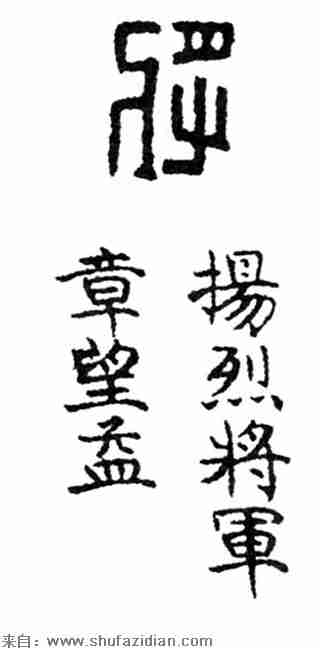 揚烈將軍
章望
来自：www.shufazidian.com